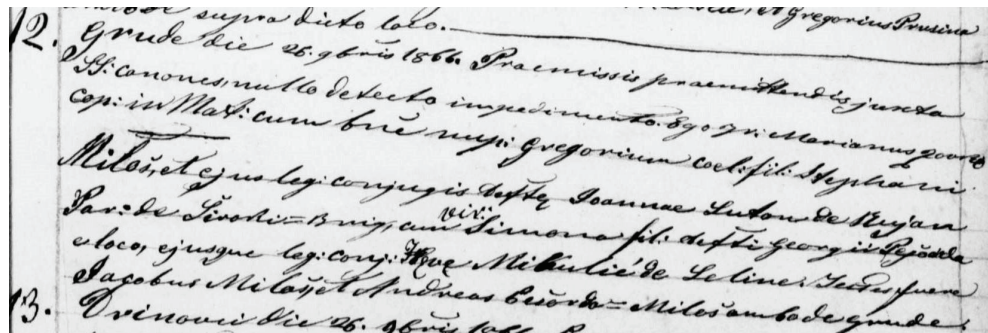 supra dicto loco. et Gregorius Prusina
12. Grude die 26. 9bris 1866. Praemissis praemittendis juxta
SS: canones, nullo detecto impedimento. Ego Fr: Marianus
cop: in Mat: cum bnē nup: Gregorium coel: fil: Stephani
Miloš, et ejus leg: conjugis deftę Joannae Luton de Rujan
Par: de Široki=Brig, cum vir: Simona fil: defti Georgii
e loco, ejusque leg: conj: Mikulić de Letine. Testes fuere
Jacobus Miloš, et Andreas =Miloš ambo de Grude
13. Drinovci die 26. 9bris